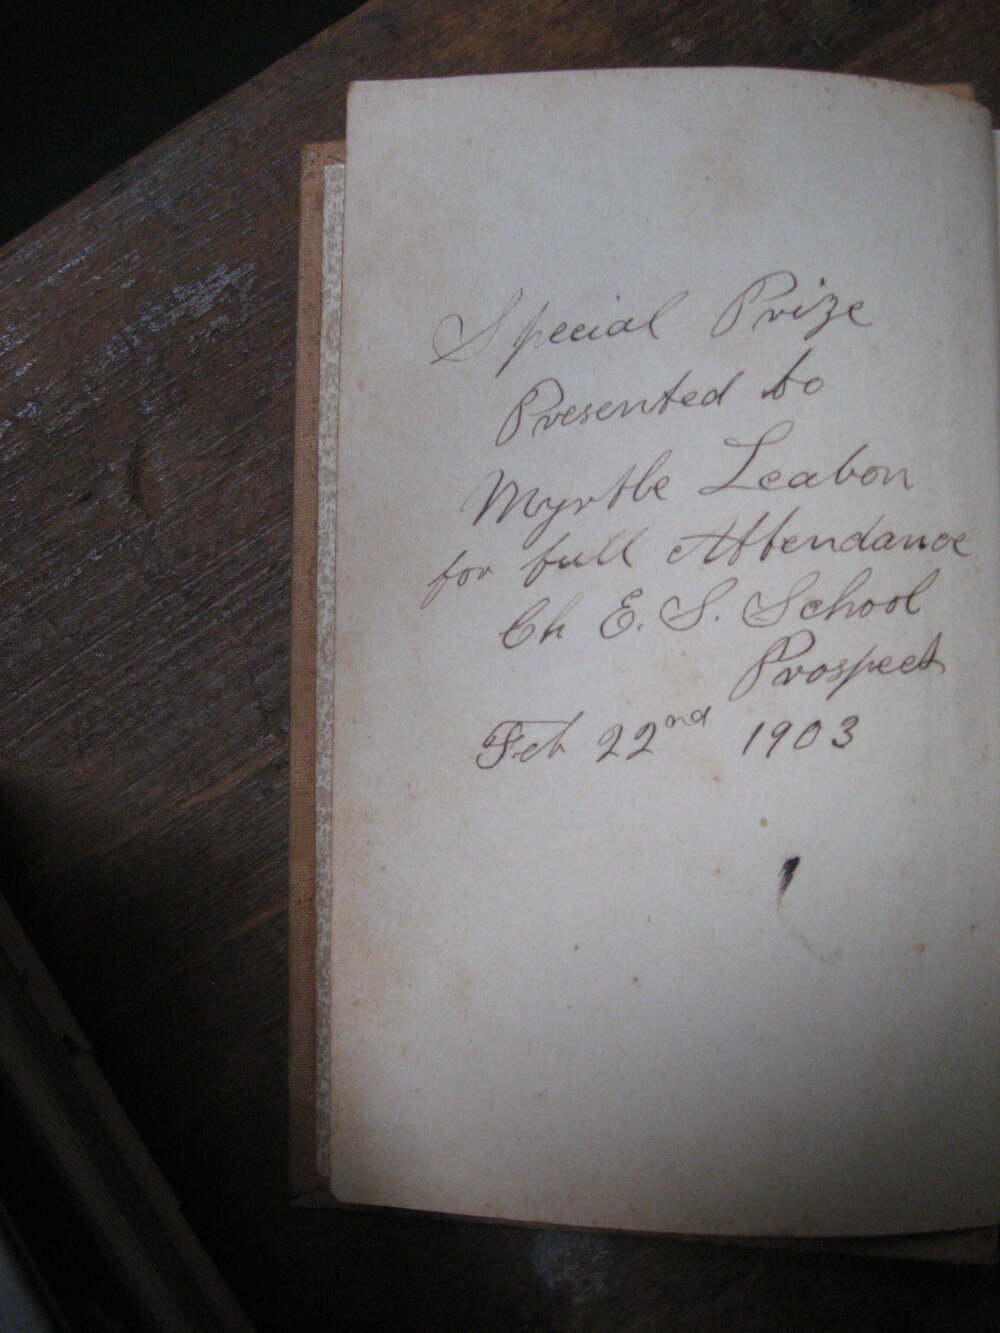 Special Prize
Presented to
Myrtle Leabon
for full Attendance
Ch E. S. School
Prospect
Feb 22nd 1903